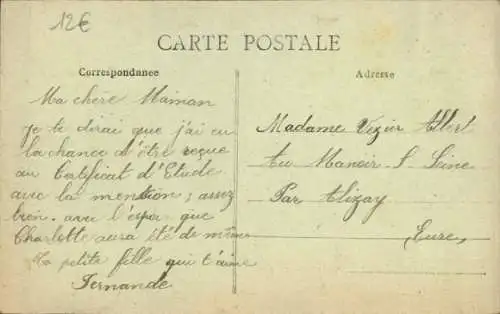 12€
CARTE POSTALE
Correspondance
Adresse
Ma chère Maman
je te dirai que j'ai eu
la chance d'être reçue
au Certificat d'Etude
avec la mention : assez
bien. avec l'espoir que
Charlotte aura été de même
Ta petite fille qui t'aime
Fernande
Madame Vezier Albert
Au Manoir S. Seine
Par Alizay
Eure